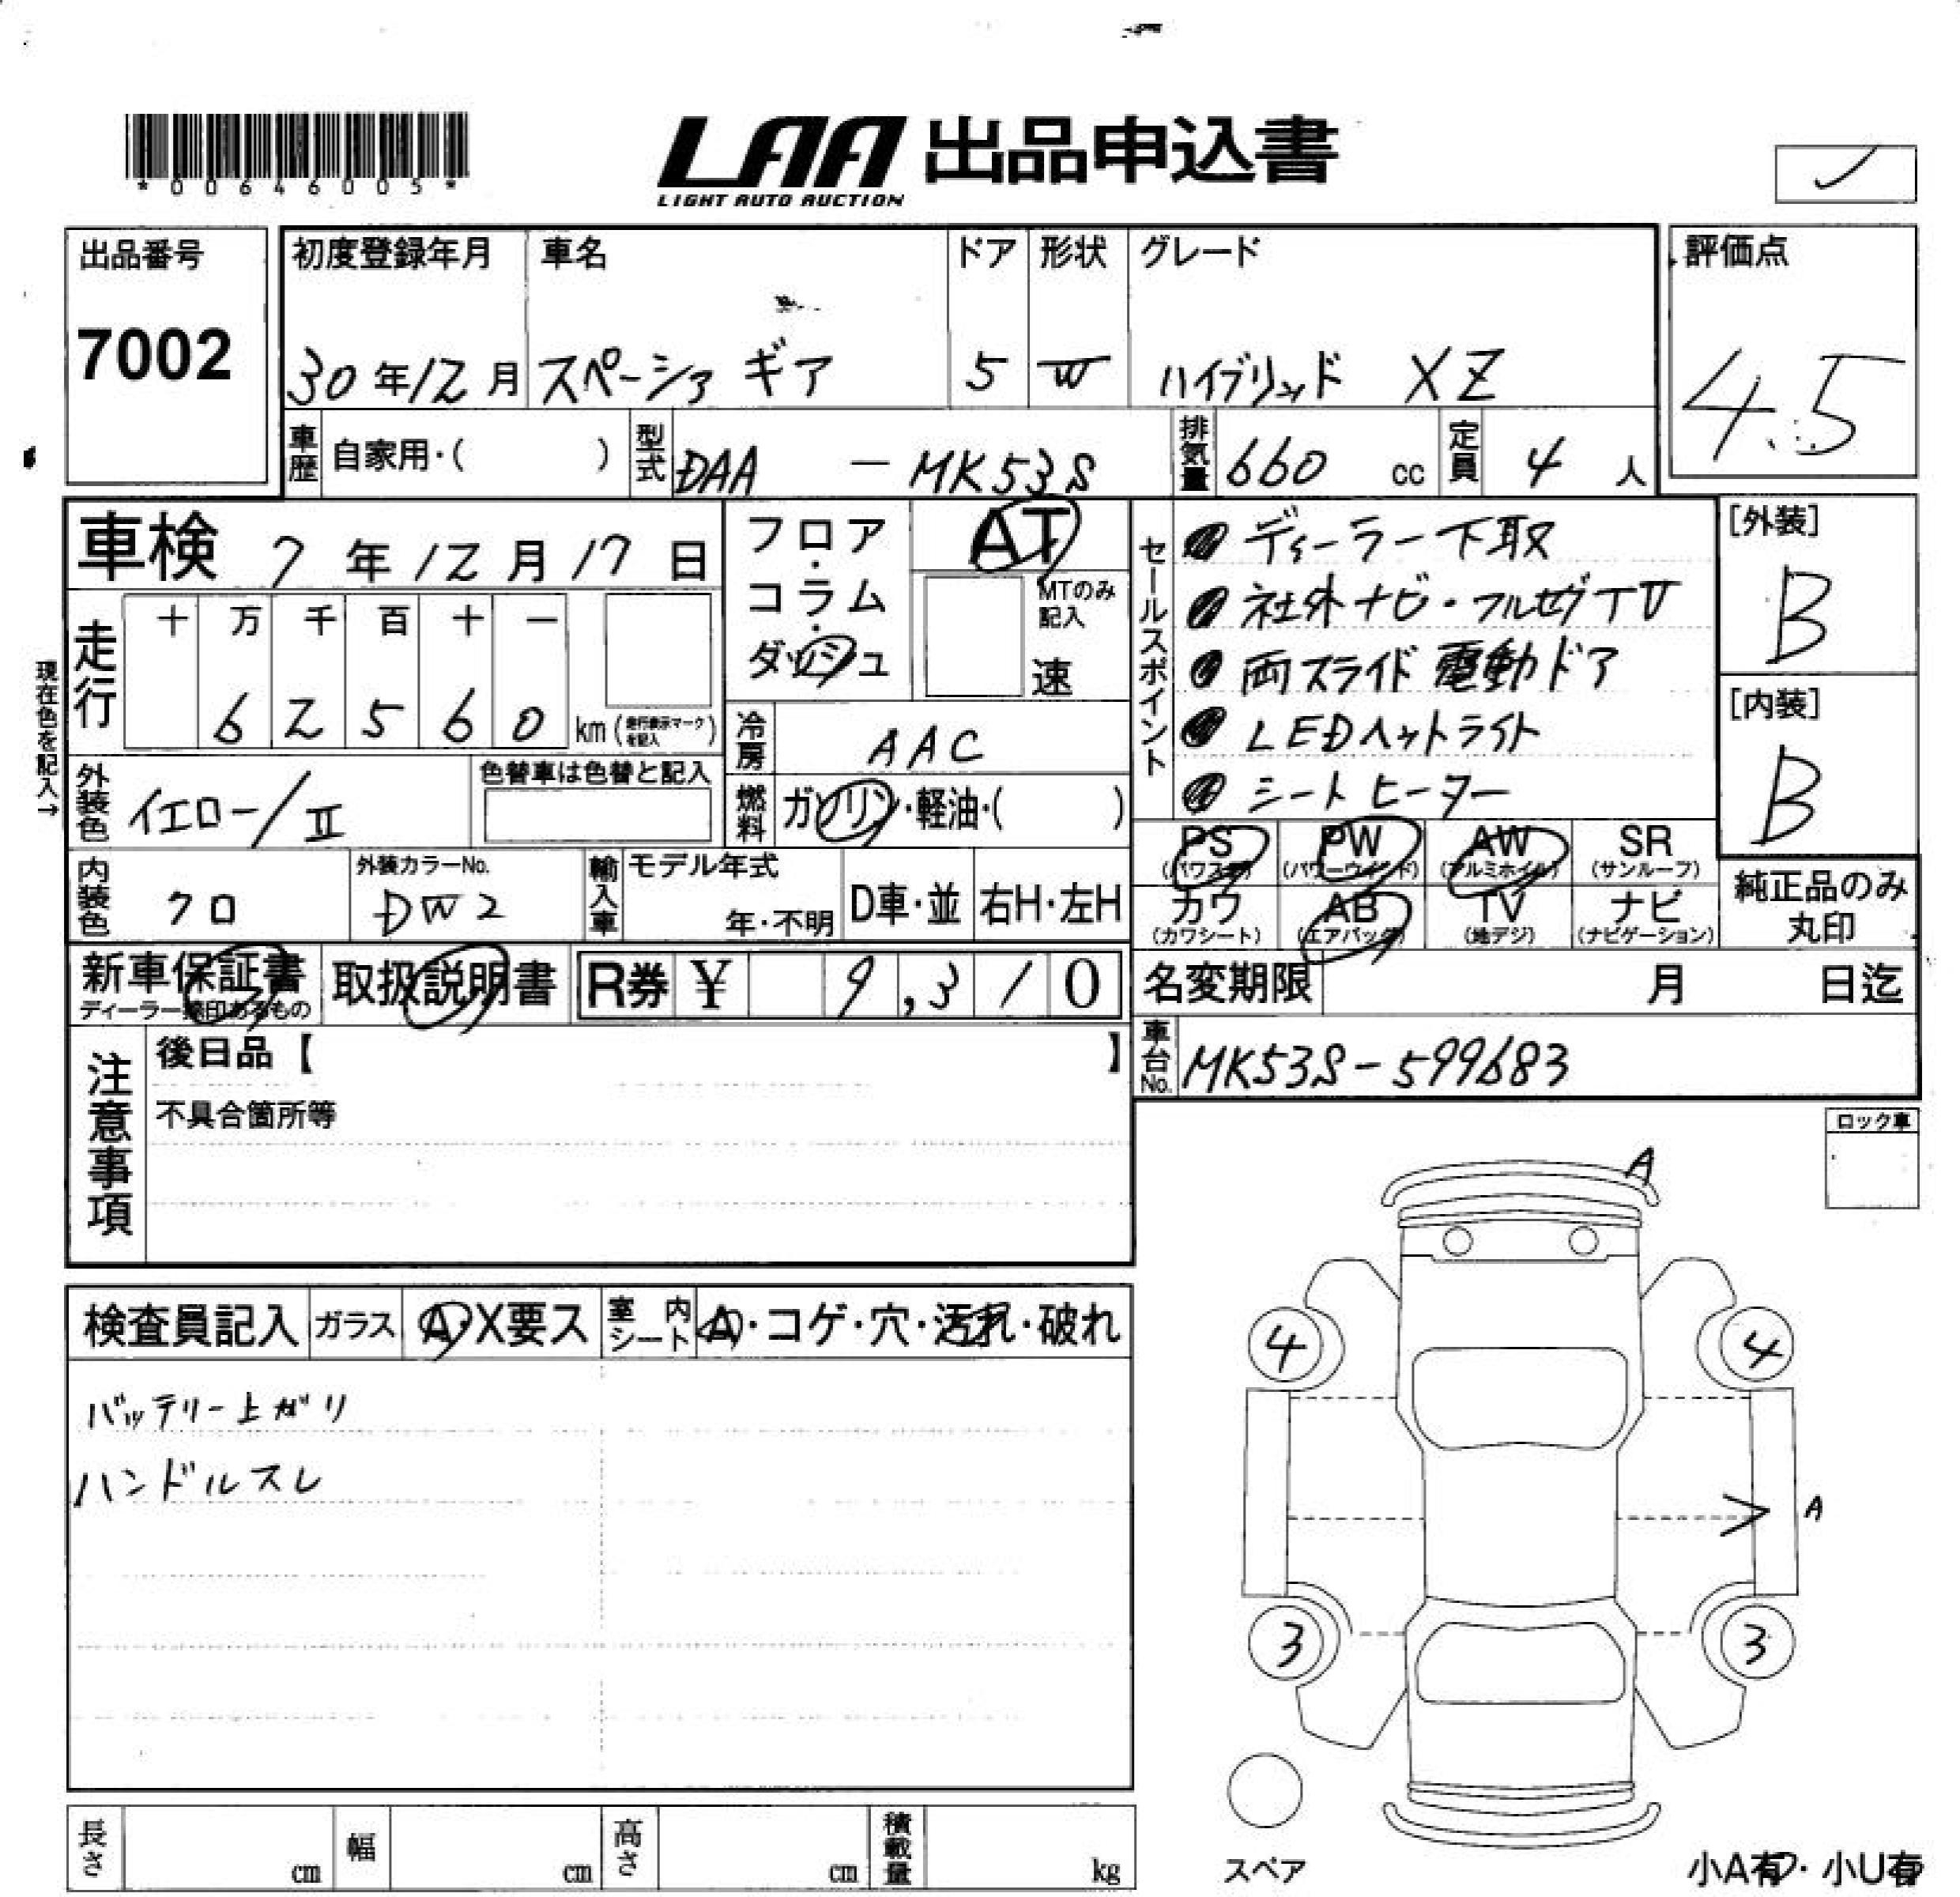 *00646005*
LAA 出品申込書
LIGHT AUTO AUCTION
出品番号
7002
初度登録年月 車名 ドア 形状 グレード
30年12月 スペーシア ギア 5 W ハイブリッド XZ
評価点
4.5
車歴 自家用・( ) 型式 DAA - MK53S 排気量 660 cc 定員 4 人
車検 7年12月17日
フロア・コラム・ダッシュ
AT
MTのみ記入
速
セールスポイント
ディーラー下取
社外ナビ・フルセグTV
両スライド電動ドア
LEDヘットライト
シートヒーター
[外装]
B
[内装]
B
現在色を記入→
走行 十 万 千 百 十 一
6 2 5 6 0 km (走行表示マークを記入)
冷房 AAC
外装色 イエロー/II
色替車は色替と記入
燃料 ガソリン・軽油・( )
PS PW AW SR
(パワステ) (パワーウインド) (アルミホイル) (サンルーフ)
カワ AB TV ナビ
(カワシート) (エアバッグ) (地デジ) (ナビゲーション)
純正品のみ
丸印
内装色 クロ
外装カラーNo.
DW2
輸入車 モデル年式
年・不明 D車・並 右H・左H
新車保証書 取扱説明書 R券 ¥ 9,310
ディーラー捺印あるもの
名変期限 月 日迄
車台No. MK53S-599683
注意事項
後日品【 】
不具合箇所等
ロック車
検査員記入 ガラス A・X要ス 室内シート A・コゲ・穴・汚れ・破れ
バッテリー上がり
ハンドルスレ
A
4 4
A
3 3
スペア
小A有・小U有
長さ cm 幅 cm 高さ cm 積載量 kg